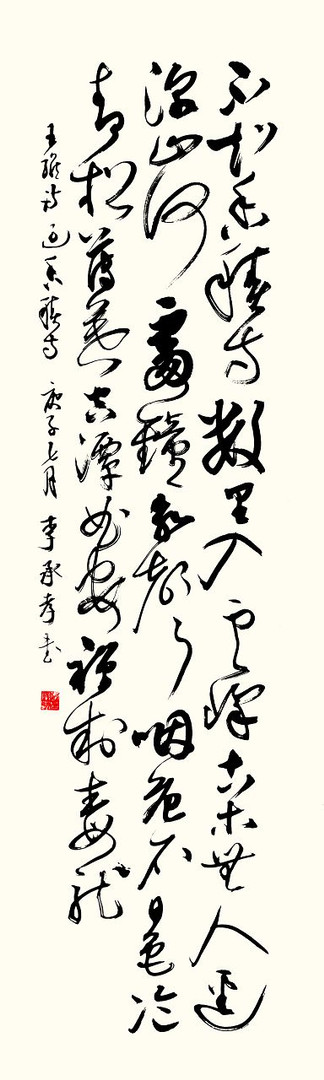 不知香積寺數里入云峰古木無人逕
深山何處鐘泉聲咽危石日色冷
青松薄暮空潭曲安禪制毒龍
王維詩過香積寺 庚子七月 李承孝書